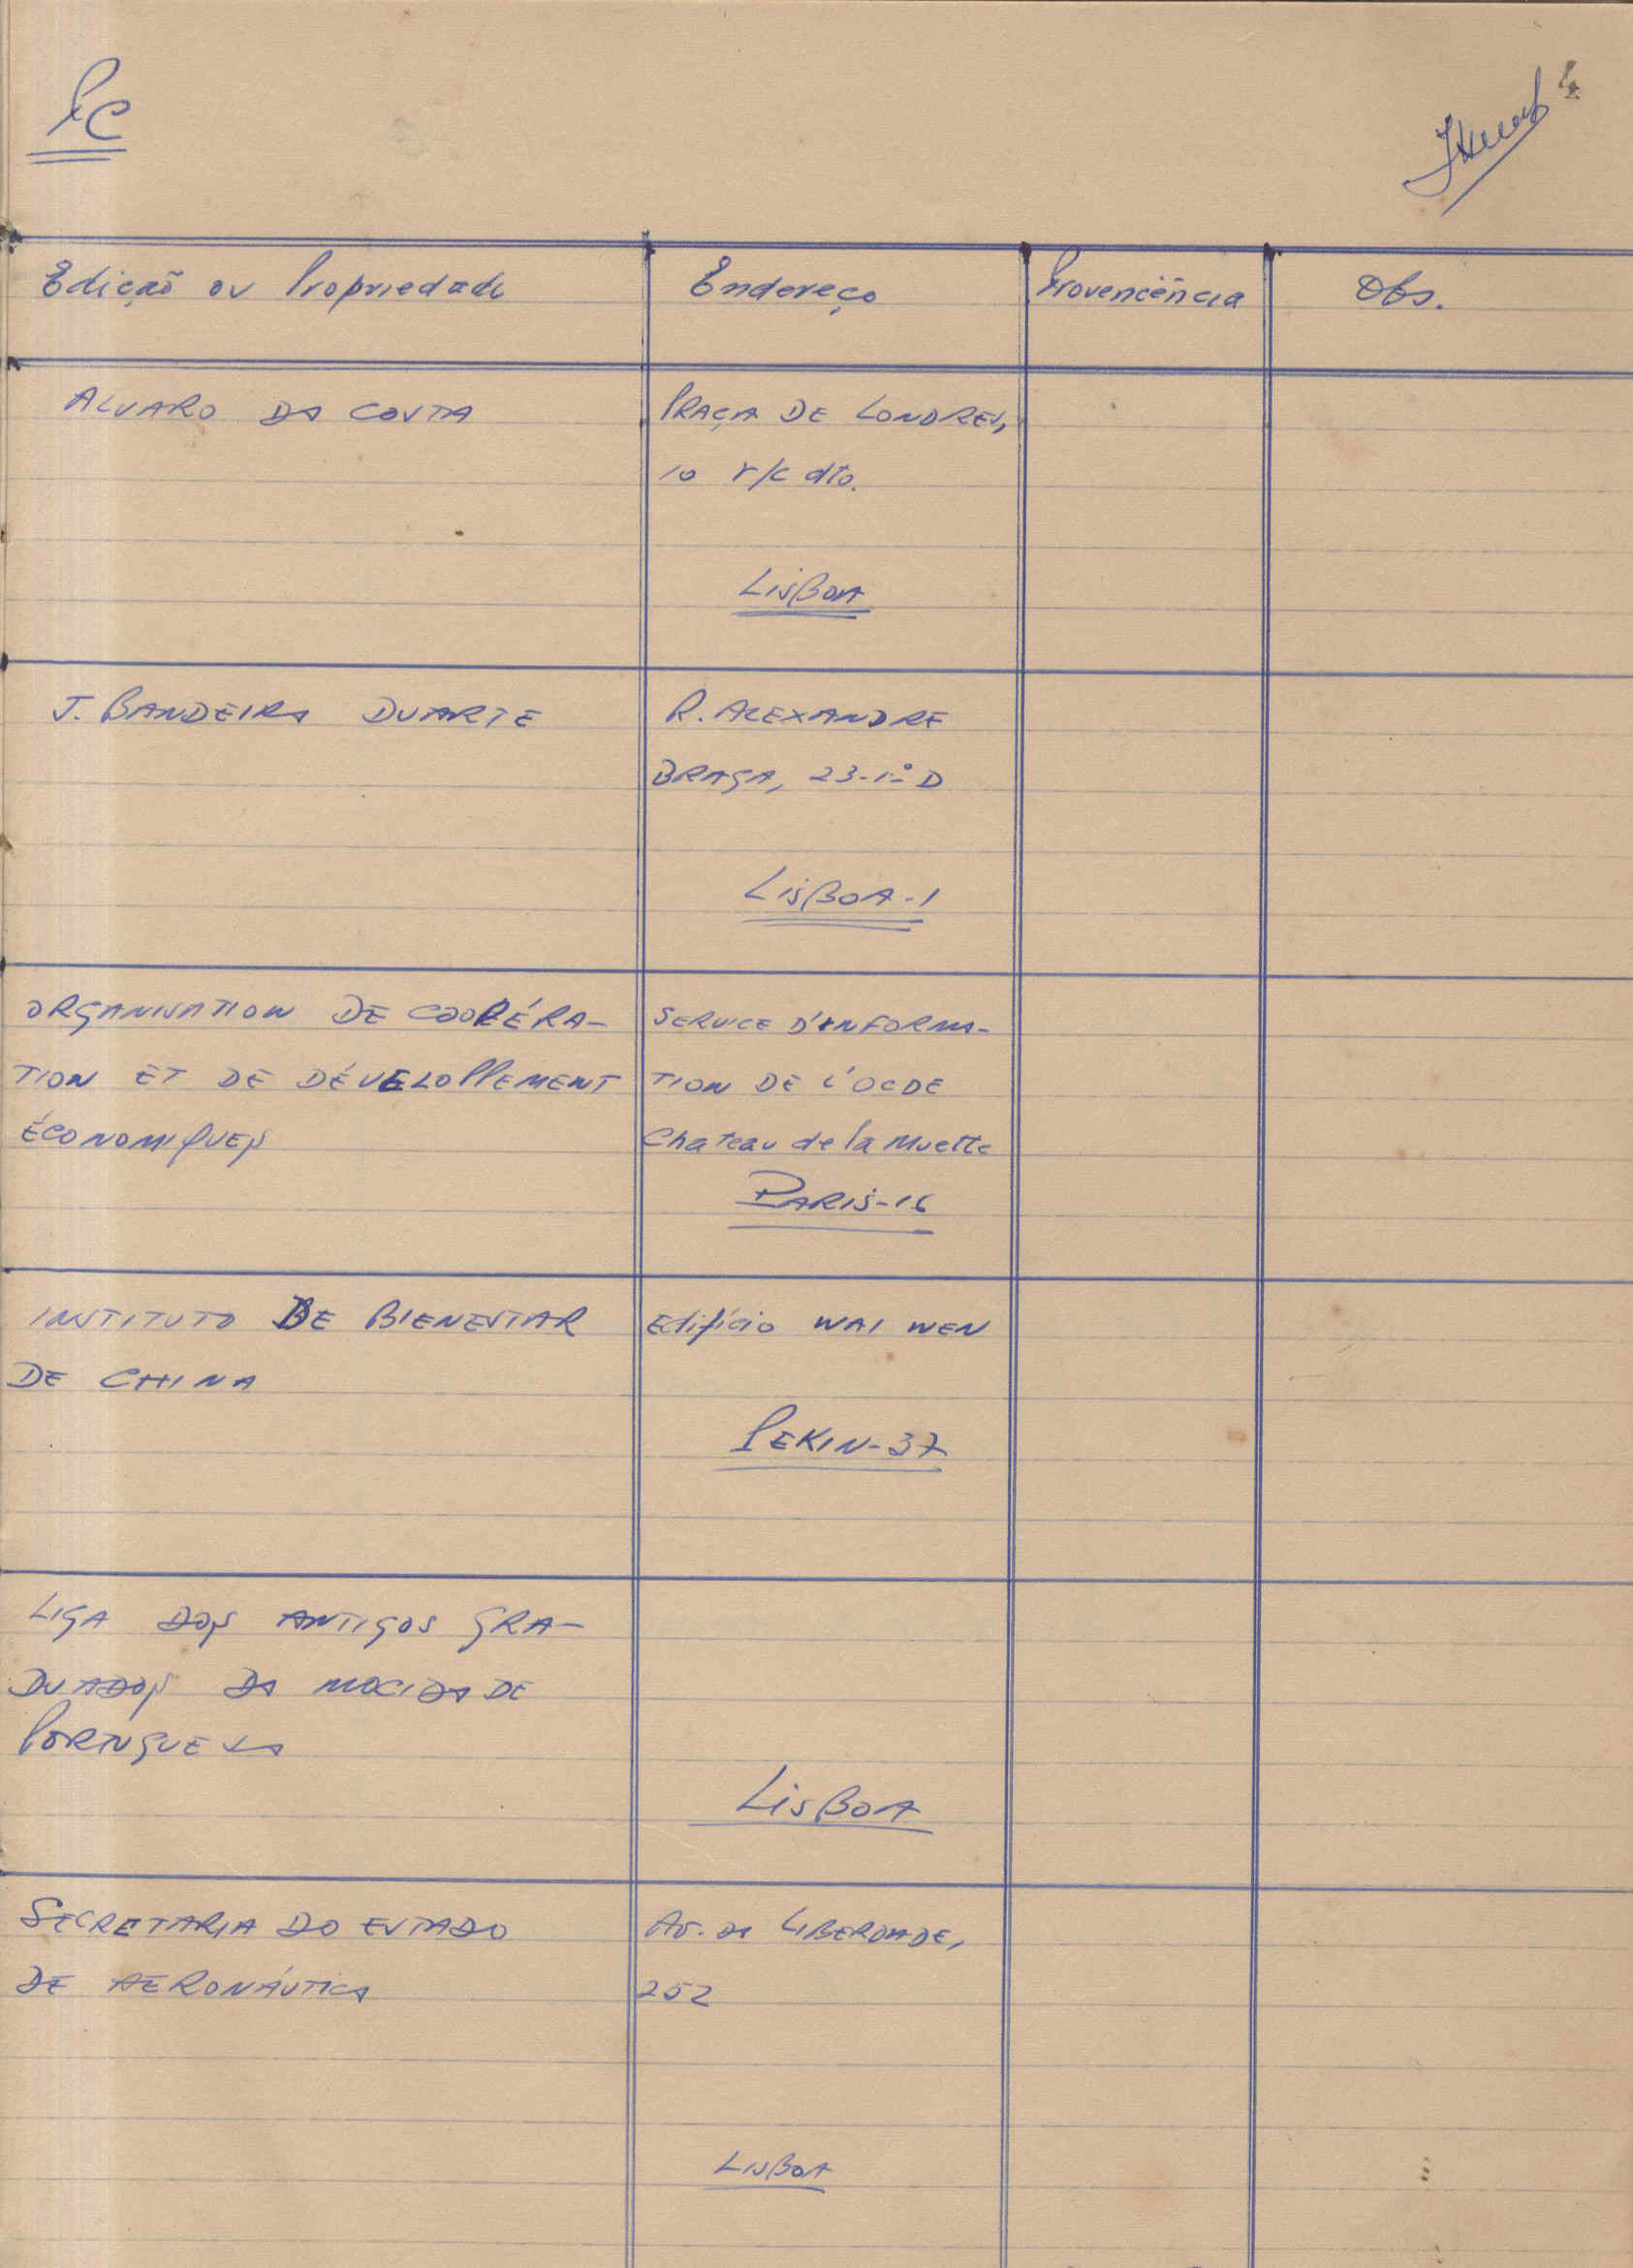 PC
4
Edição ou Propriedade Endereço Provenciência Obs.
ALVARO DA COSTA PRAÇA DE LONDRES,
10 r/c dto.
LISBOA
J. BANDEIRA DUARTE R. ALEXANDRE
BRAGA, 23-1.º D
LISBOA-1
ORGANISATION DE COOPÉRA- SERVICE D'INFORMA-
TION ET DE DÉVELOPPEMENT TION DE L'OCDE
ÉCONOMIQUES Chateau de la Muette
PARIS-16
INSTITUTO DE BIENESTAR Edifício WAI WEN
DE CHINA
PEKIN-37
LIGA DOS ANTIGOS GRA-
DUADOS DA MOCIDADE
PORTUGUESA
LISBOA
SECRETARIA DO ESTADO Av. da LIBERDADE,
DE AERONÁUTICA 252
LISBOA